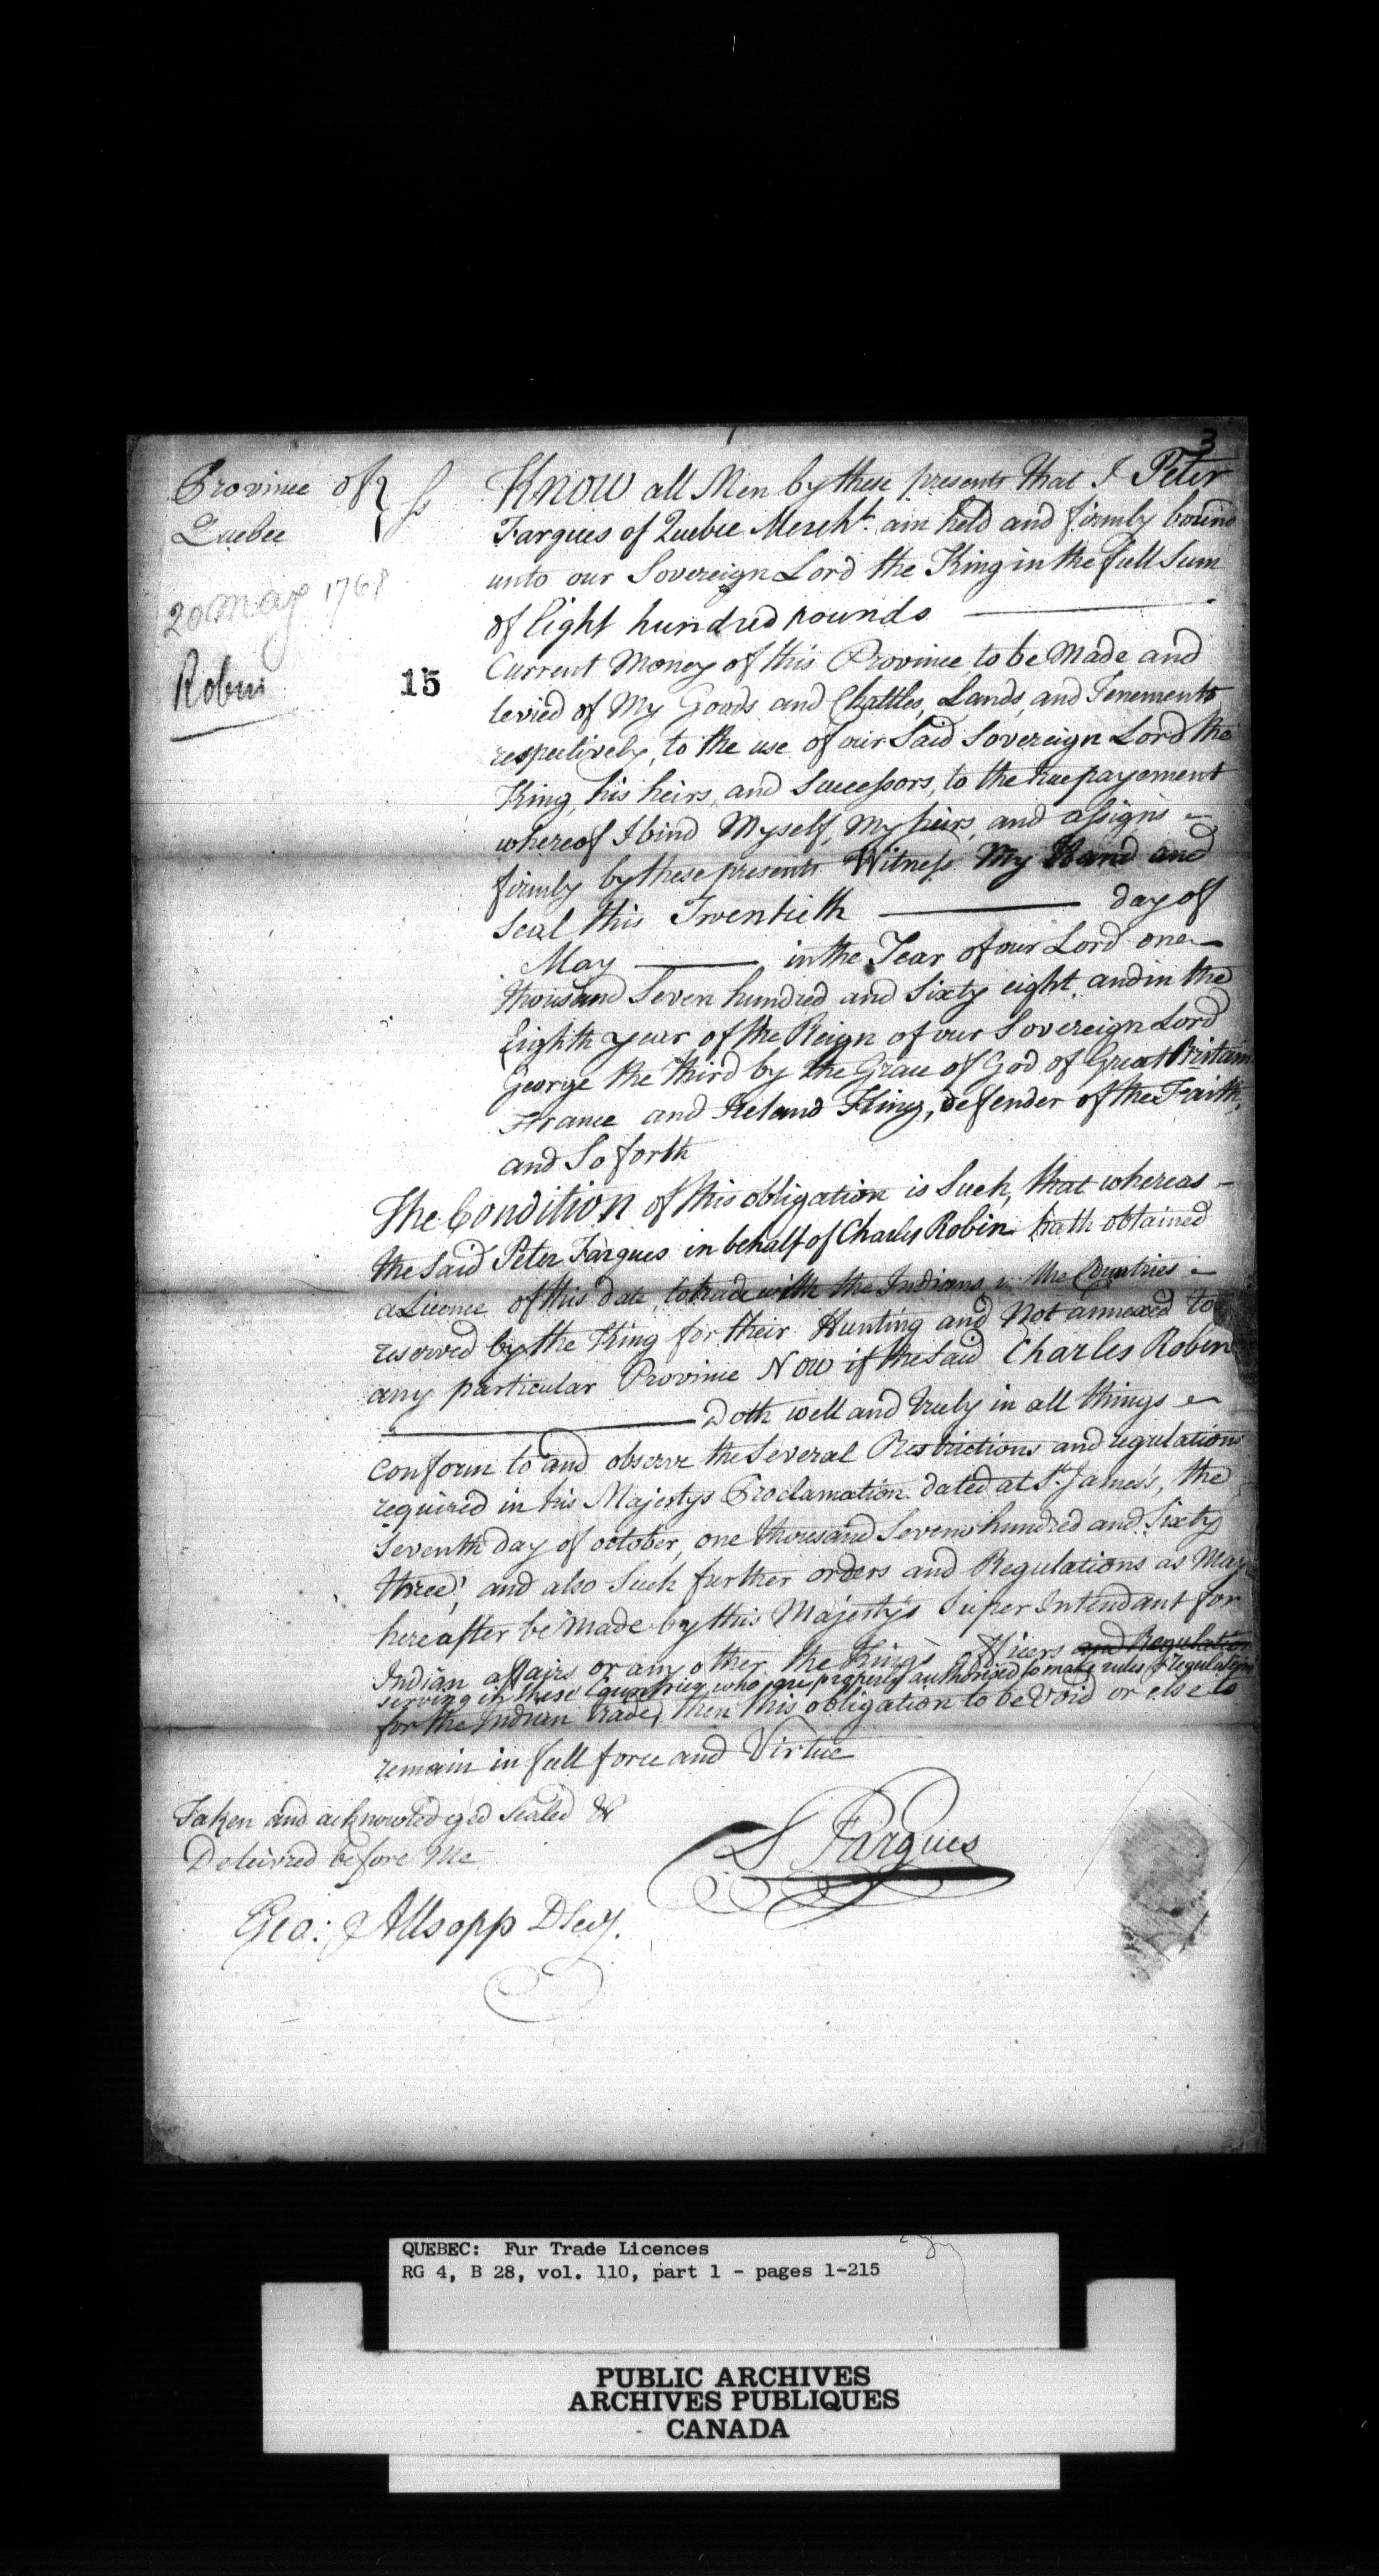 3
Province of } ss
Quebec
20 May 1768
Robin
15
Know all Men by these presents that I Peter
Fargues of Quebec Mercht. am held and firmly bound
unto our Sovereign Lord the King in the full Sum
of Eight hundred pounds
Current Money of this Province to be Made and
levied of My Goods and Chattles, Lands, and Tenements
respectively, to the use of our Said Sovereign Lord the
King, his heirs, and Successors, to the true payement
whereof I bind Myself, My heirs, and assigns
firmly by these presents Witness My Hand and
Seal this Twentieth day of
May in the Year of our Lord one
thousand Seven hundred and Sixty eight and in the
Eighth year of the Reign of our Sovereign Lord
George the third by the Grace of God of Great Britain
France and Ireland King, defender of the Faith,
and So forth
The Condition of this obligation is Such, that whereas
the Said Peter Fargues in behalf of Charles Robin hath obtained
a Licence of this date, to trade with the Indians in the Countries
reserved by the King for their Hunting and Not annexed to
any particular Province Now if the Said Charles Robin
Doth well and truly in all things
conform to and observe the Several Restrictions and regulations
required in his Majestys Proclamation dated at St. James's, the
Seventh day of october, one thousand Seven hundred and Sixty
three, and also Such further orders and Regulations as May
hereafter be Made by this Majesty's Super Intendant for
Indian affairs or any other the King's officers and Regulation
serving in these Countries who are properly authorised to make rules & regulations
for the Indian trade, then this obligation to be Void or else to
remain in full force and Virtue
Taken and acknowledeged Sealed &
Delivred before Me
Fargues
Geo: Allsopp DSecy.
QUEBEC: Fur Trade Licences
RG 4, B 28, vol. 110, part 1 - pages 1-215
PUBLIC ARCHIVES
ARCHIVES PUBLIQUES
CANADA